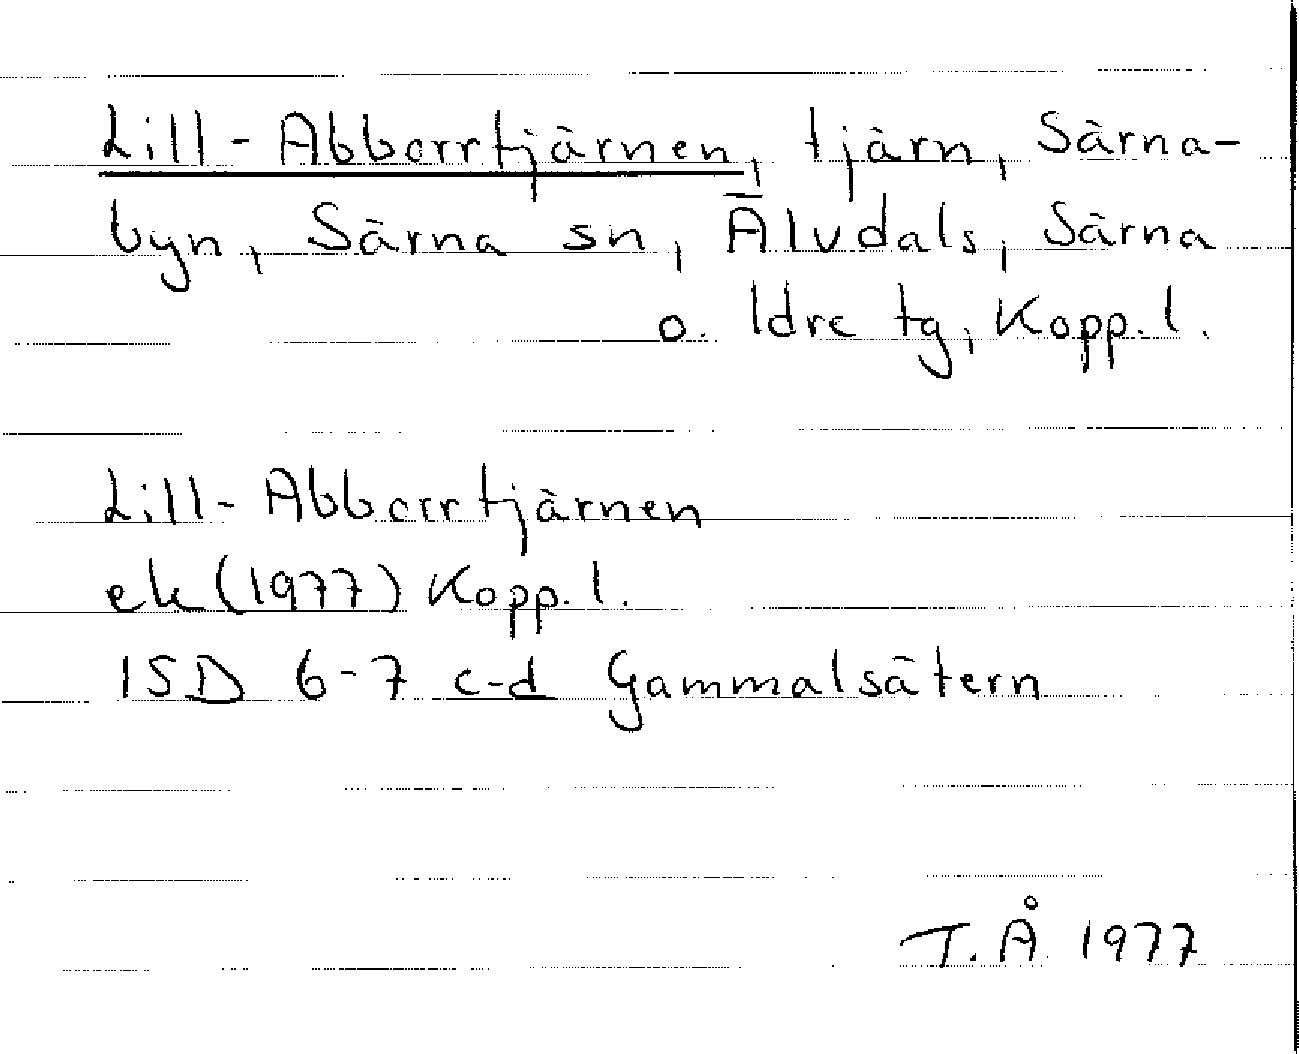 Lill-Abborrtjärnen, tjärn, Särna-
byn, Särna sn, Älvdals, Särna
o. Idre tg, Kopp.l.
Lill-Abborrtjärnen
ek (1977) Kopp.l.
15D 6-7 c-d Gammalsätern
T.Å 1977